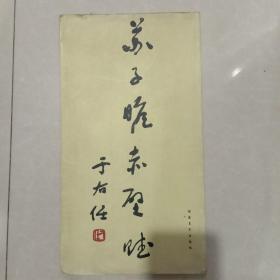 苏子瞻赤壁赋
于右任